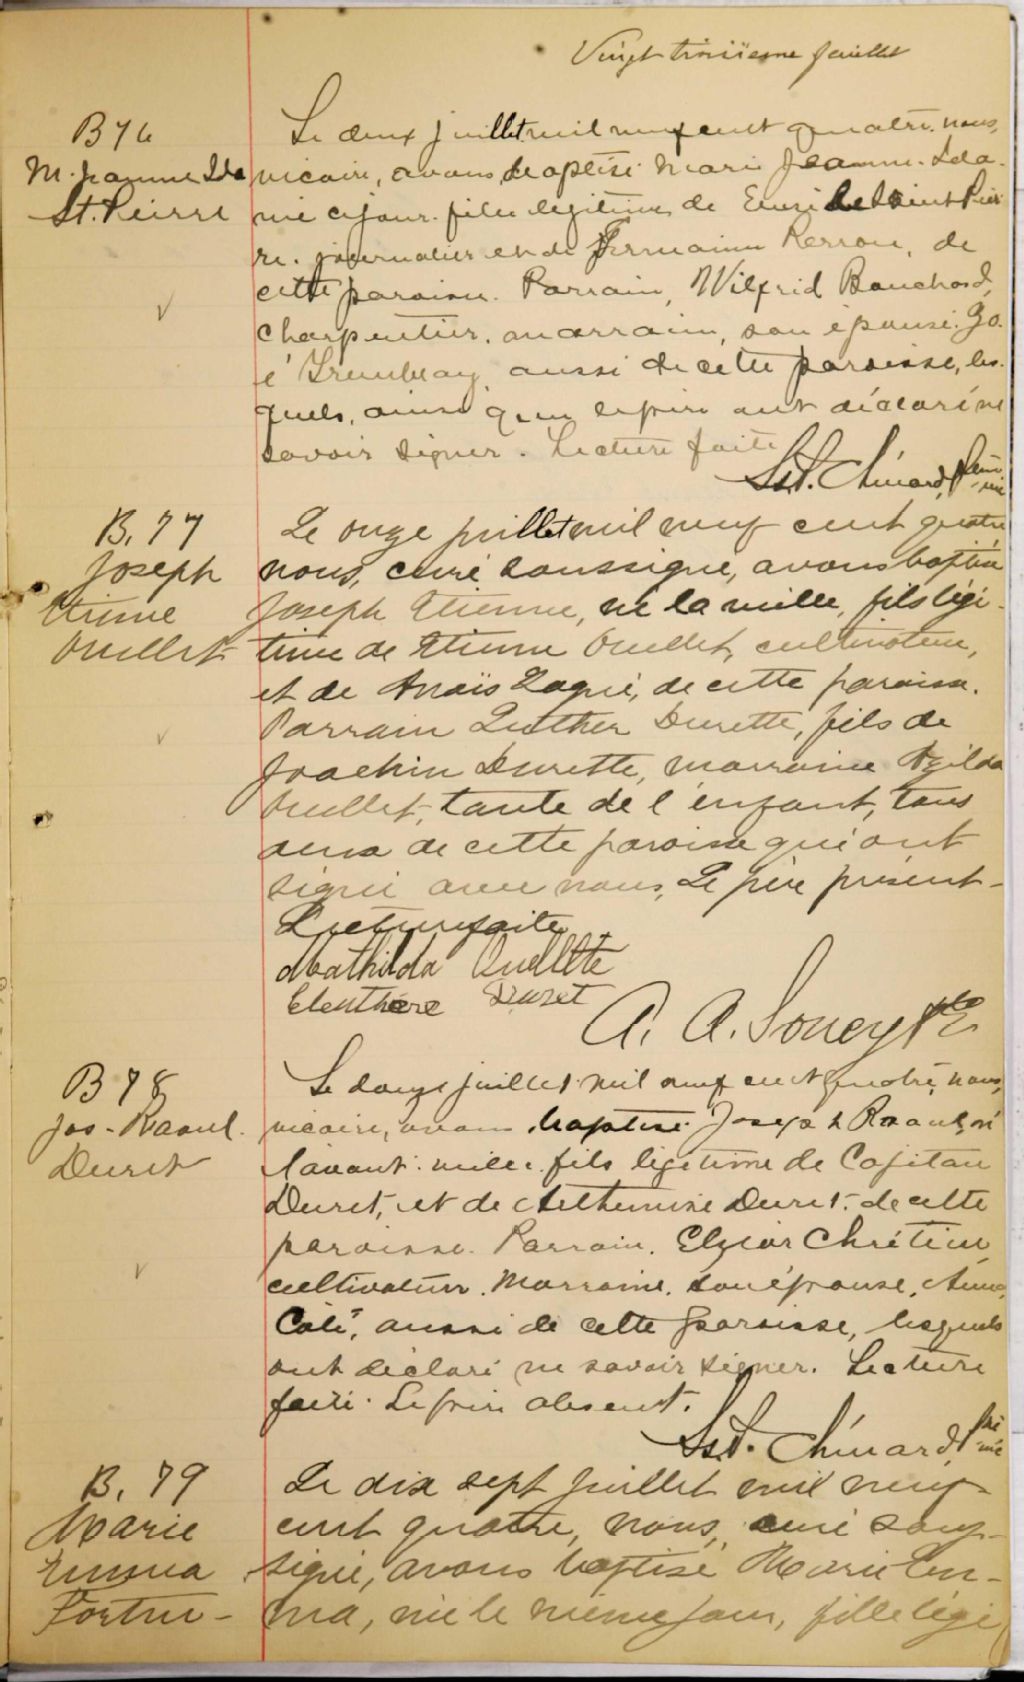 Vingt troisième feuillet
B 76
M. Jeanne Ida
St. Pierre
Le deux juillet mil neuf cent quatre, nous,
vicaire, avons baptisé Marie Jeanne Ida
née ce jour, fille légitime de de Saint Pier
re, journalier et de Germaine Perron, de
cette paroisse. Parrain, Wilfrid Bouchard,
charpentier, marraine, son épouse,
é Tremblay, aussi de cette paroisse, les-
quels, ainsi que le père ont déclaré ne
savoir signer. Lecture faite
Ls. T. Chinard, Ptre
vic
B. 77
Joseph
Etienne
Ouellet
Le onze juillet mil neuf cent quatre
nous, curé soussigné, avons baptisé
Joseph Etienne, né la veille, fils légi-
time de Etienne Ouellet, cultivateur,
et de Anaïs Lagué, de cette paroisse.
Parrain Luther Durette, fils de
Joachin Durette, marraine
Ouellet, tante de l'enfant, tous
deux de cette paroisse qui ont
signé avec nous, Le père présent-
Lecture faite
Mathilda Ouellette
Eleuthère Duret
A. A. Soucy Ptre
B 78
Jos-Raoul.
Duret
Le douze juillet mil neuf cent quatre, nous,
vicaire, avons baptisé Joseph Raoul, né
l'avant veille fils légitime de Capitan
Duret, et de Duret de cette
paroisse. Parrain, Elzéar Chrétien,
cultivateur. Marraine, son épouse,
Coté, aussi de cette paroisse, lesquels
ont déclaré ne savoir signer. Lecture
faite. Le père absent.
Ls. T. Chinard, Ptre
vic
B. 79
Marie
Emma
Fortin-
Le dix sept juillet mil neuf
cent quatre, nous, curé sous-
signé, avons baptisé Marie Em-
ma, née le même jour, fille légi